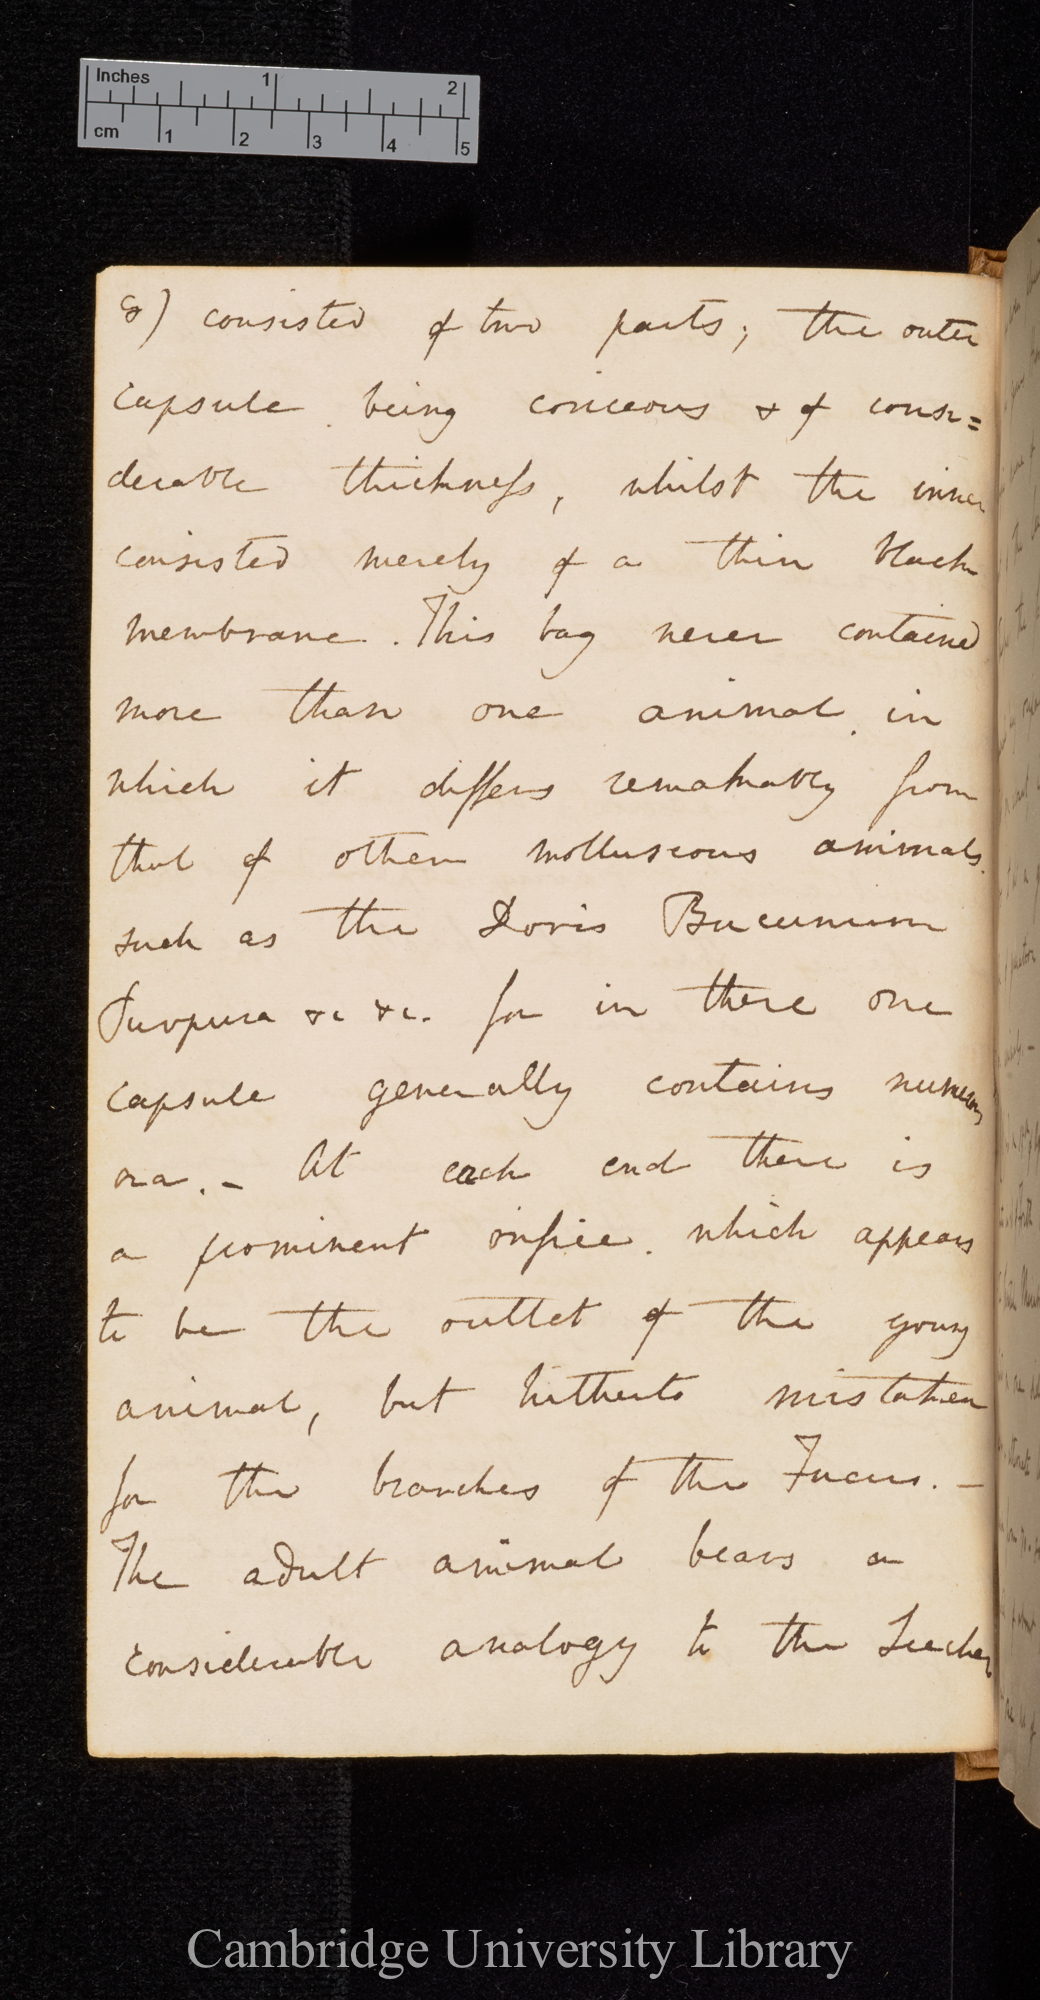 Inches 1 2
cm 1 2 3 4 5
8) consisted of two parts; the outer
capsule being coriceous & of consi=
derable thickness, whilst the inner
consisted merely of a thin black
membrane. This bag never contained
more than one animal. in
which it differs remarkably from
that of others molluscous animals.
such as the Doris Buccunum
Purpura &c &c. for in there one
capsule generally contains numerous
ova. – At each end there is
a prominent orifice. which appears
to be the outlet of the young
animal, but hitherto mistaken
for the branches of the Fucus. –
The adult animal bears a
considerable analogy to the Leeches
Cambridge University Library